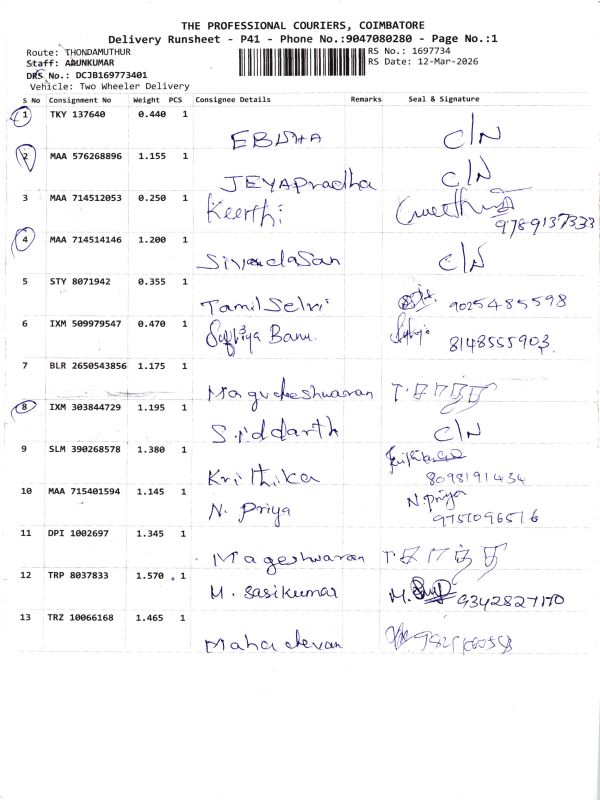 THE PROFESSIONAL COURIERS, COIMBATORE
Delivery Runsheet - P41 - Phone No.:9047080280 - Page No.:1
Route: THONDAMUTHUR RS No.: 1697734
Staff: ARUNKUMAR RS Date: 12-Mar-2026
DRS No.: DCJB169773401
Vehicle: Two Wheeler Delivery
S No Consignment No Weight PCS Consignee Details Remarks Seal & Signature
1 TKY 137640 0.440 1 C/N
2 MAA 576268896 1.155 1 JEYAPradha C/N
3 MAA 714512053 0.250 1 Keerthi 9789137333
4 MAA 714514146 1.200 1 Sivandasan C/N
5 STY 8071942 0.355 1 Tamil Selvi 9025485598
6 IXM 509979547 0.470 1 Suffiya Banu. 8148555903
7 BLR 2650543856 1.175 1 Magudeshwaran
8 IXM 303844729 1.195 1 Siddarth C/N
9 SLM 390268578 1.380 1 Krithika 8098191434
10 MAA 715401594 1.145 1 N. Priya N. Priya 9751096516
11 DPI 1002697 1.345 1 Mageshwaran
12 TRP 8037833 1.570 1 M. Sasikumar M. 9342827170
13 TRZ 10066168 1.465 1 Mahadevan